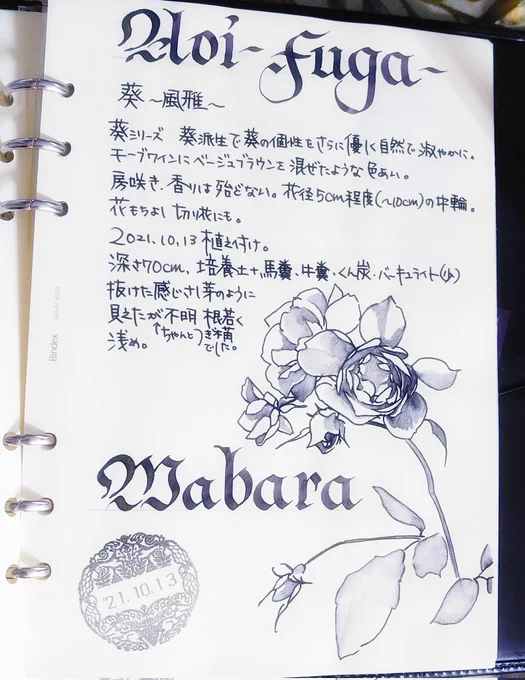 Aoi-Fuga-
葵 〜風雅〜
葵シリーズ 葵派生で葵の個性をさらに優しく自然で淑やかに。
モーブワインにベージュブラウンを混ぜたような色あい。
房咲き、香りは殆どない。花径5cm程度(〜10cm)の中輪。
花もちよし 切り花にも。
2021.10.13 植え付け。
深さ70cm、培養土+馬糞、牛糞、くん炭、バーキュライト(少)
抜けた感じさし芽のように
見えたが不明 根若く
↑ちゃんと
でした。
浅め。
Wabara
'21.10.13
Bindex